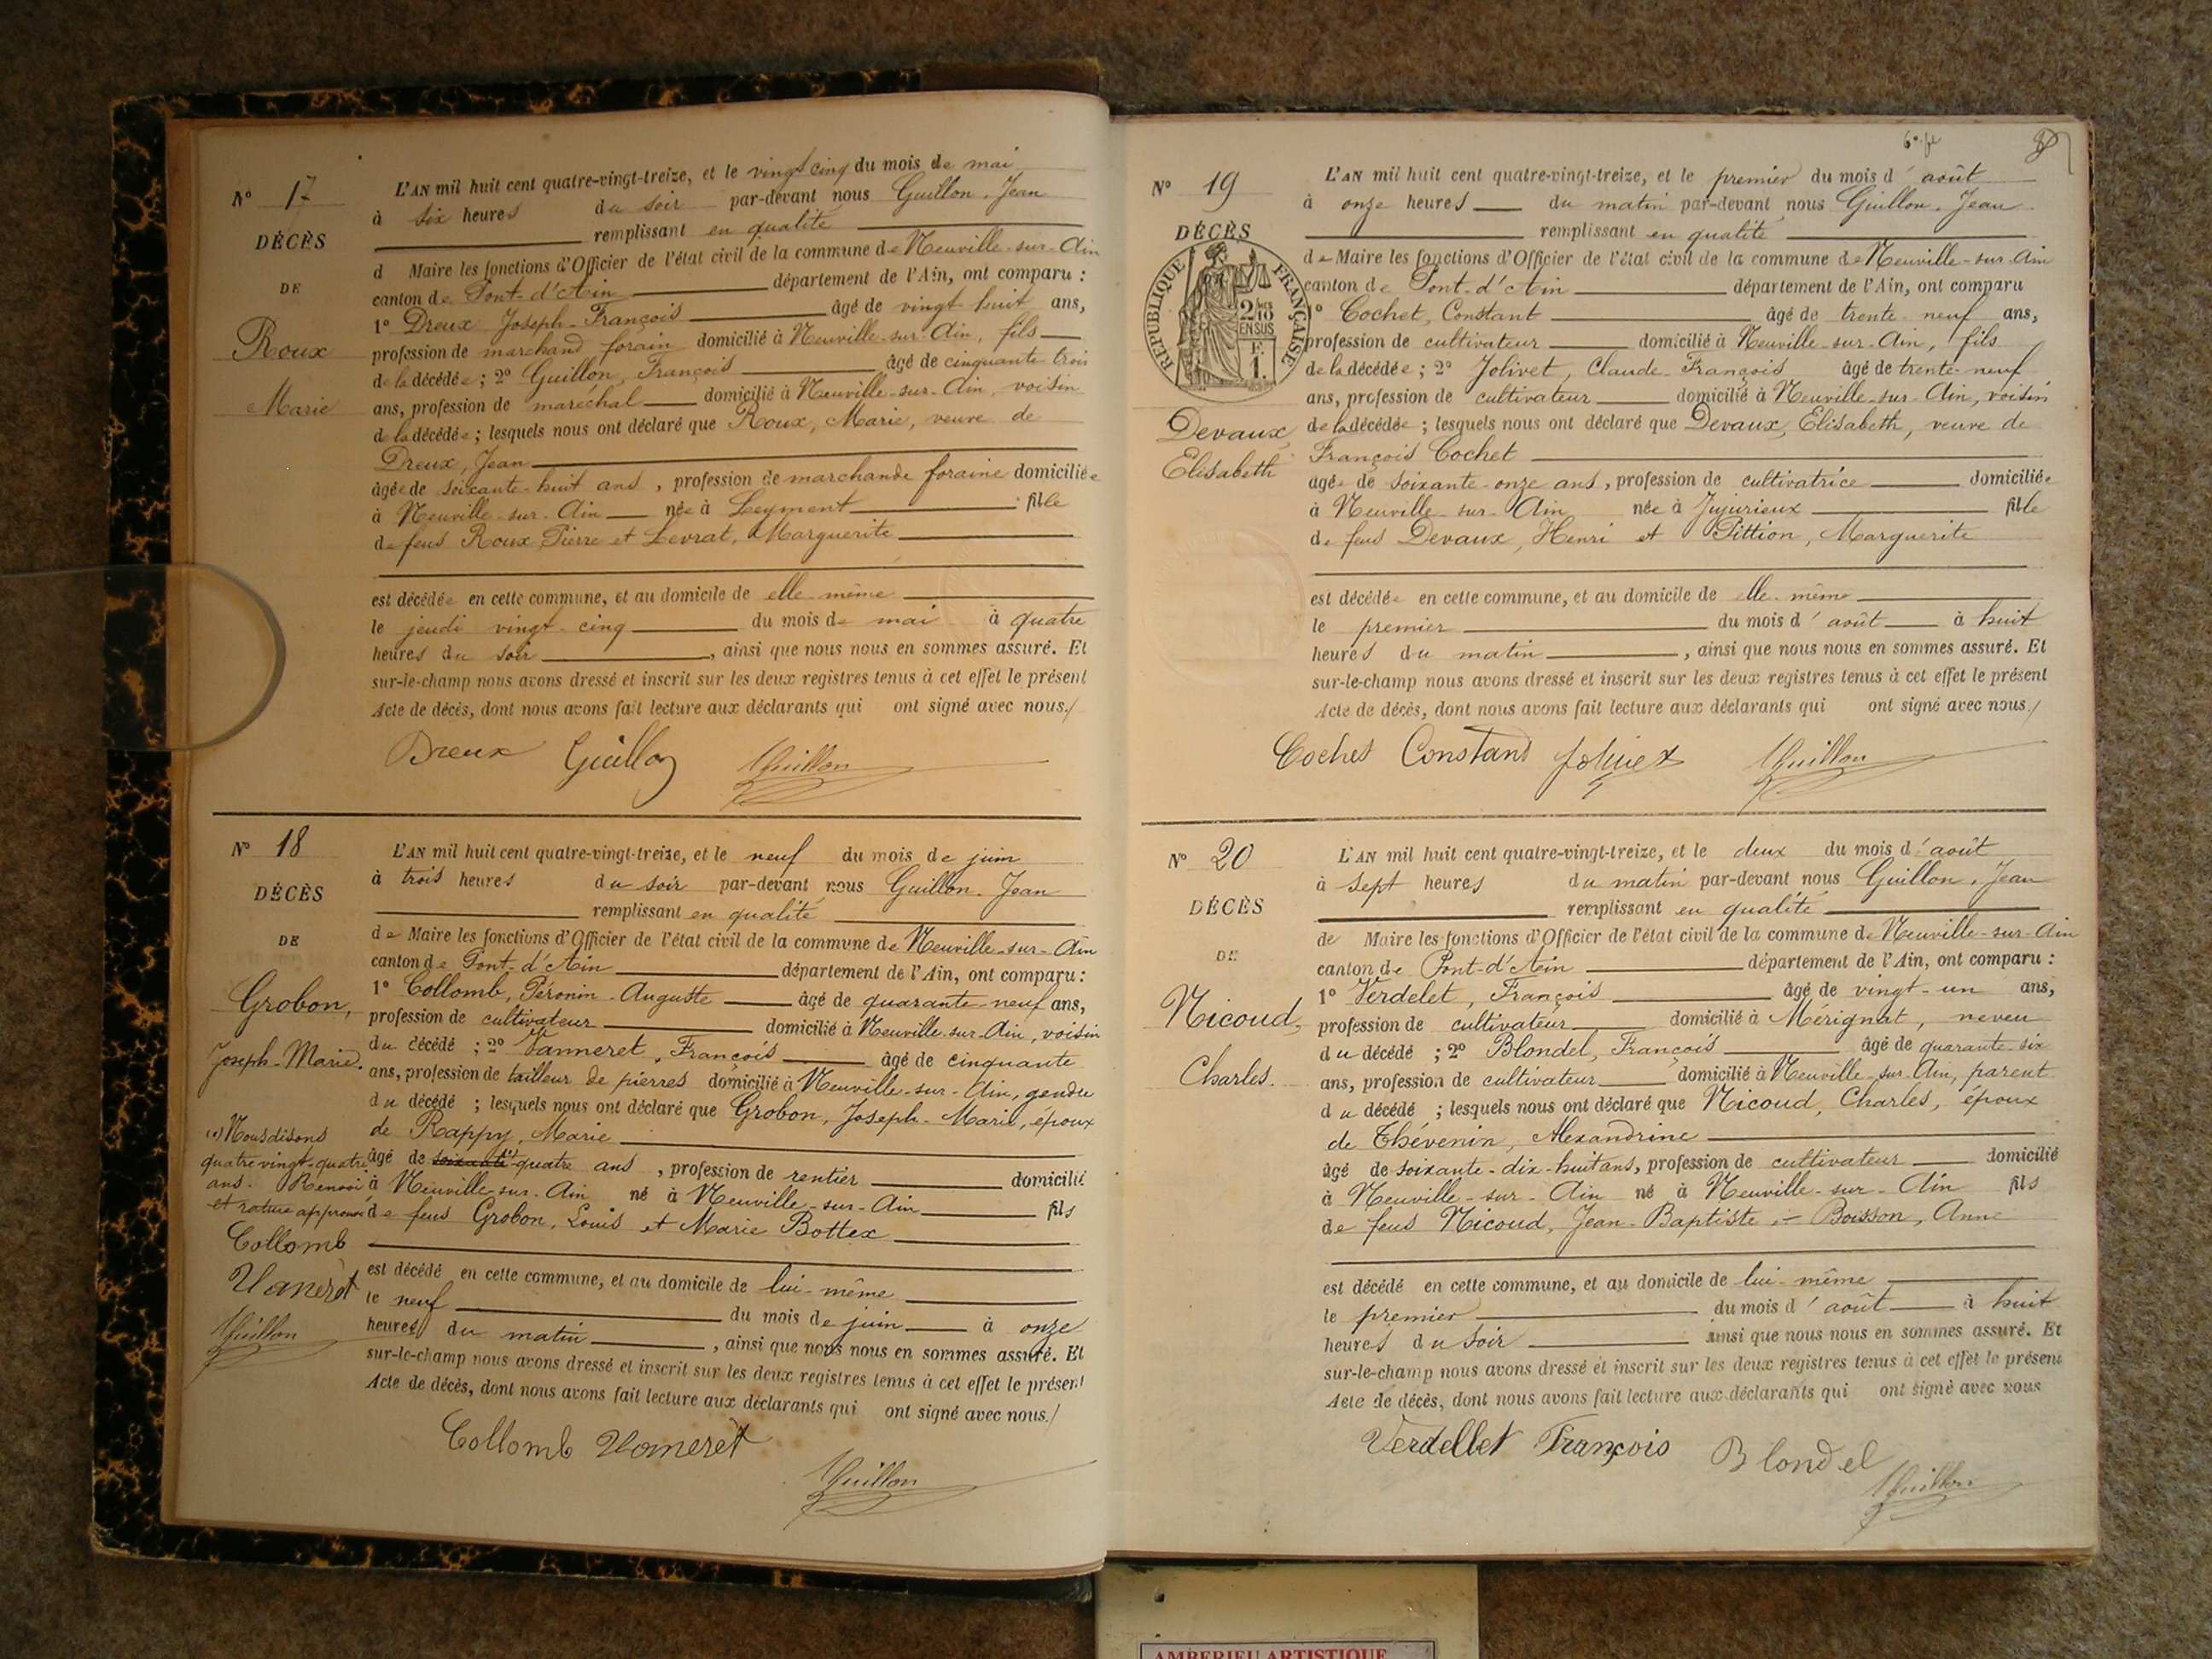 Nº 17
DÉCÈS
DE
Roux
Marie
L'AN mil huit cent quatre-vingt-treize, et le vingt cinq du mois de mai
à six heures du soir par-devant nous Guillon, Jean
remplissant en qualité
d Maire les fonctions d'Officier de l'état civil de la commune de Neuville-sur-Ain
canton de Pont-d'Ain département de l'Ain, ont comparu :
1º Dreux Joseph-François âgé de vingt huit ans,
profession de marchand forain domicilié à Neuville-sur-Ain, fils
de la décédée ; 2º Guillon, François âgé de cinquante trois
ans, profession de maréchal domicilié à Neuville-sur-Ain, voisin
de la décédée ; lesquels nous ont déclaré que Roux, Marie, veuve de
Dreux, Jean
âgée de soixante-huit ans, profession de marchande foraine domiciliée
à Neuville-sur-Ain née à Leyment fille
de feus Roux Pierre et Levrat, Marguerite
est décédée en cette commune, et au domicile de elle-même
le jeudi vingt-cinq du mois de mai à quatre
heures du soir, ainsi que nous nous en sommes assuré. Et
sur-le-champ nous avons dressé et inscrit sur les deux registres tenus à cet effet le présent
Acte de décès, dont nous avons fait lecture aux déclarants qui ont signé avec nous./
Dreux Guillon Guillon
Nº 18
DÉCÈS
DE
Grobon,
Joseph-Marie.
L'AN mil huit cent quatre-vingt-treize, et le neuf du mois de juin
à trois heures du soir par-devant nous Guillon, Jean
remplissant en qualité
de Maire les fonctions d'Officier de l'état civil de la commune de Neuville-sur-Ain
canton de Pont-d'Ain département de l'Ain, ont comparu :
1º Collomb, Péronin-Auguste âgé de quarante-neuf ans,
profession de cultivateur domicilié à Neuville-sur-Ain, voisin
du décédé ; 2º Vanneret, François âgé de cinquante
ans, profession de tailleur de pierres domicilié à Neuville-sur-Ain, gendre
du décédé ; lesquels nous ont déclaré que Grobon, Joseph-Marie, époux
de Rappy, Marie
âgé de soixante quatre ans, profession de rentier domicilié
à Neuville-sur-Ain né à Neuville-sur-Ain fils
de feus Grobon, Louis et Marie Bottex
est décédé en cette commune, et au domicile de lui-même
le neuf du mois de juin à onze
heures du matin, ainsi que nous nous en sommes assuré. Et
sur-le-champ nous avons dressé et inscrit sur les deux registres tenus à cet effet le présent
Acte de décès, dont nous avons fait lecture aux déclarants qui ont signé avec nous./
Nous disons
quatre vingt-quatre
ans. Renvoi
et rature approuvé
Collomb
Vaneret
Guillon
Collomb Vaneret
Guillon
8
Nº 19
DÉCÈS
RÉPUBLIQUE FRANÇAISE
2/10 EN SUS
F. 1.
Devaux,
Elisabeth
L'AN mil huit cent quatre-vingt-treize, et le premier du mois d'août
à onze heures du matin par-devant nous Guillon, Jean
remplissant en qualité
de Maire les fonctions d'Officier de l'état civil de la commune de Neuville-sur-Ain
canton de Pont-d'Ain département de l'Ain, ont comparu
1º Cochet, Constant âgé de trente-neuf ans,
profession de cultivateur domicilié à Neuville-sur-Ain, fils
de la décédée ; 2º Jolivet, Claude-François âgé de trente-neuf
ans, profession de cultivateur domicilié à Neuville-sur-Ain, voisin
de la décédée ; lesquels nous ont déclaré que Devaux, Elisabeth, veuve de
François Cochet
âgée de soixante-onze ans, profession de cultivatrice domiciliée
à Neuville-sur-Ain née à Jujurieux fille
de feus Devaux, Henri et Pittion, Marguerite
est décédée en cette commune, et au domicile de elle-même
le premier du mois d'août à huit
heures du matin, ainsi que nous nous en sommes assuré. Et
sur-le-champ nous avons dressé et inscrit sur les deux registres tenus à cet effet le présent
Acte de décès, dont nous avons fait lecture aux déclarants qui ont signé avec nous./
Cochet Constant Jolivet Guillon
Nº 20
DÉCÈS
DE
Nicoud,
Charles.
L'AN mil huit cent quatre-vingt-treize, et le deux du mois d'août
à sept heures du matin par-devant nous Guillon, Jean
remplissant en qualité
de Maire les fonctions d'Officier de l'état civil de la commune de Neuville-sur-Ain
canton de Pont-d'Ain département de l'Ain, ont comparu :
1º Verdelet, François âgé de vingt-un ans,
profession de cultivateur domicilié à Mérignat, neveu
du décédé ; 2º Blondel, François âgé de quarante-six
ans, profession de cultivateur domicilié à Neuville-sur-Ain, parent
du décédé ; lesquels nous ont déclaré que Nicoud, Charles, époux
de Thévenin, Alexandrine
âgé de soixante-dix-huit ans, profession de cultivateur domicilié
à Neuville-sur-Ain né à Neuville-sur-Ain fils
de feus Nicoud, Jean-Baptiste et Boisson, Anne
est décédé en cette commune, et au domicile de lui-même
le premier du mois d'août à huit
heures du soir ainsi que nous nous en sommes assuré. Et
sur-le-champ nous avons dressé et inscrit sur les deux registres tenus à cet effet le présent
Acte de décès, dont nous avons fait lecture aux déclarants qui ont signé avec nous
Verdellet François Blondel
Guillon
AMBERIEU ARTISTIQUE